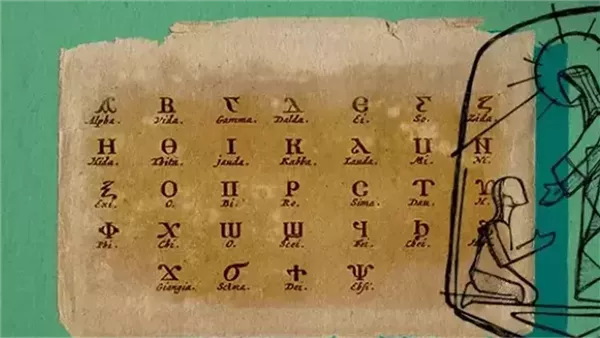 Ⲁ Ⲃ Ⲅ Ⲇ Ⲉ Ⲋ Ⲍ
Alpha. Vida. Gamma. Dalda. Ei. So. Zida.
Ⲏ Ⲑ Ⲓ Ⲕ Ⲗ Ⲙ Ⲛ
Hida. Thita. Jauda. Kabba. Lauda. Mi. Ni.
Ⲝ Ⲟ Ⲡ Ⲣ Ⲥ Ⲧ Ⲩ
Exi. O. Bi. Ro. Sima. Dau. H.
Ⲫ Ⲭ Ⲱ Ϣ Ϥ Ϧ
Phi. Chi. O. Scei. Fei. Chei.
Ϫ Ϭ Ϯ Ⲯ
Giangia. Scima. Dei. Ebsi.